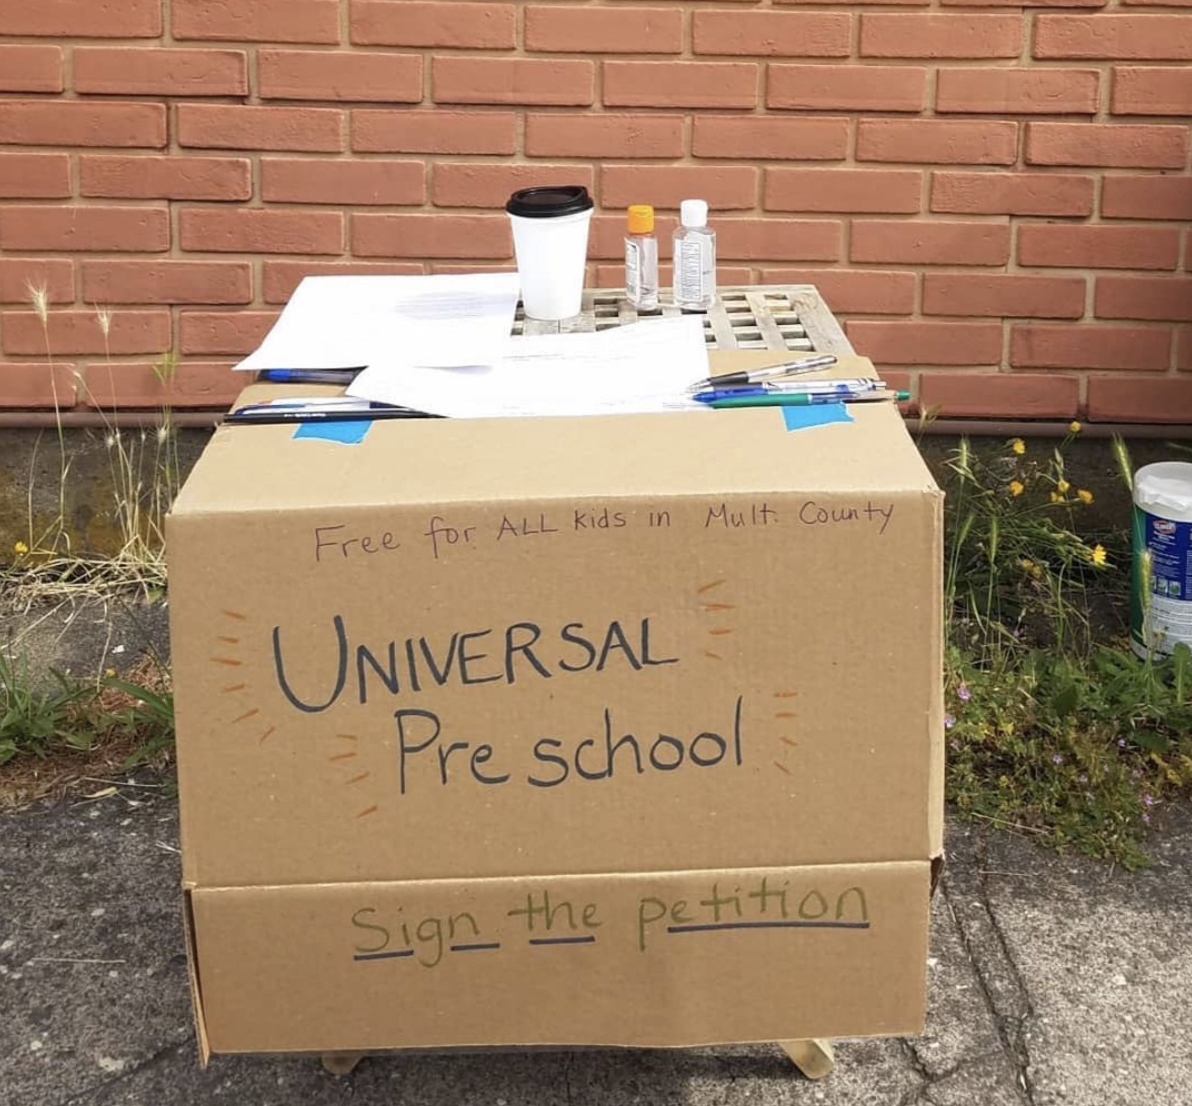 Free for ALL kids in Mult. County
UNIVERSAL
Preschool
Sign the petition